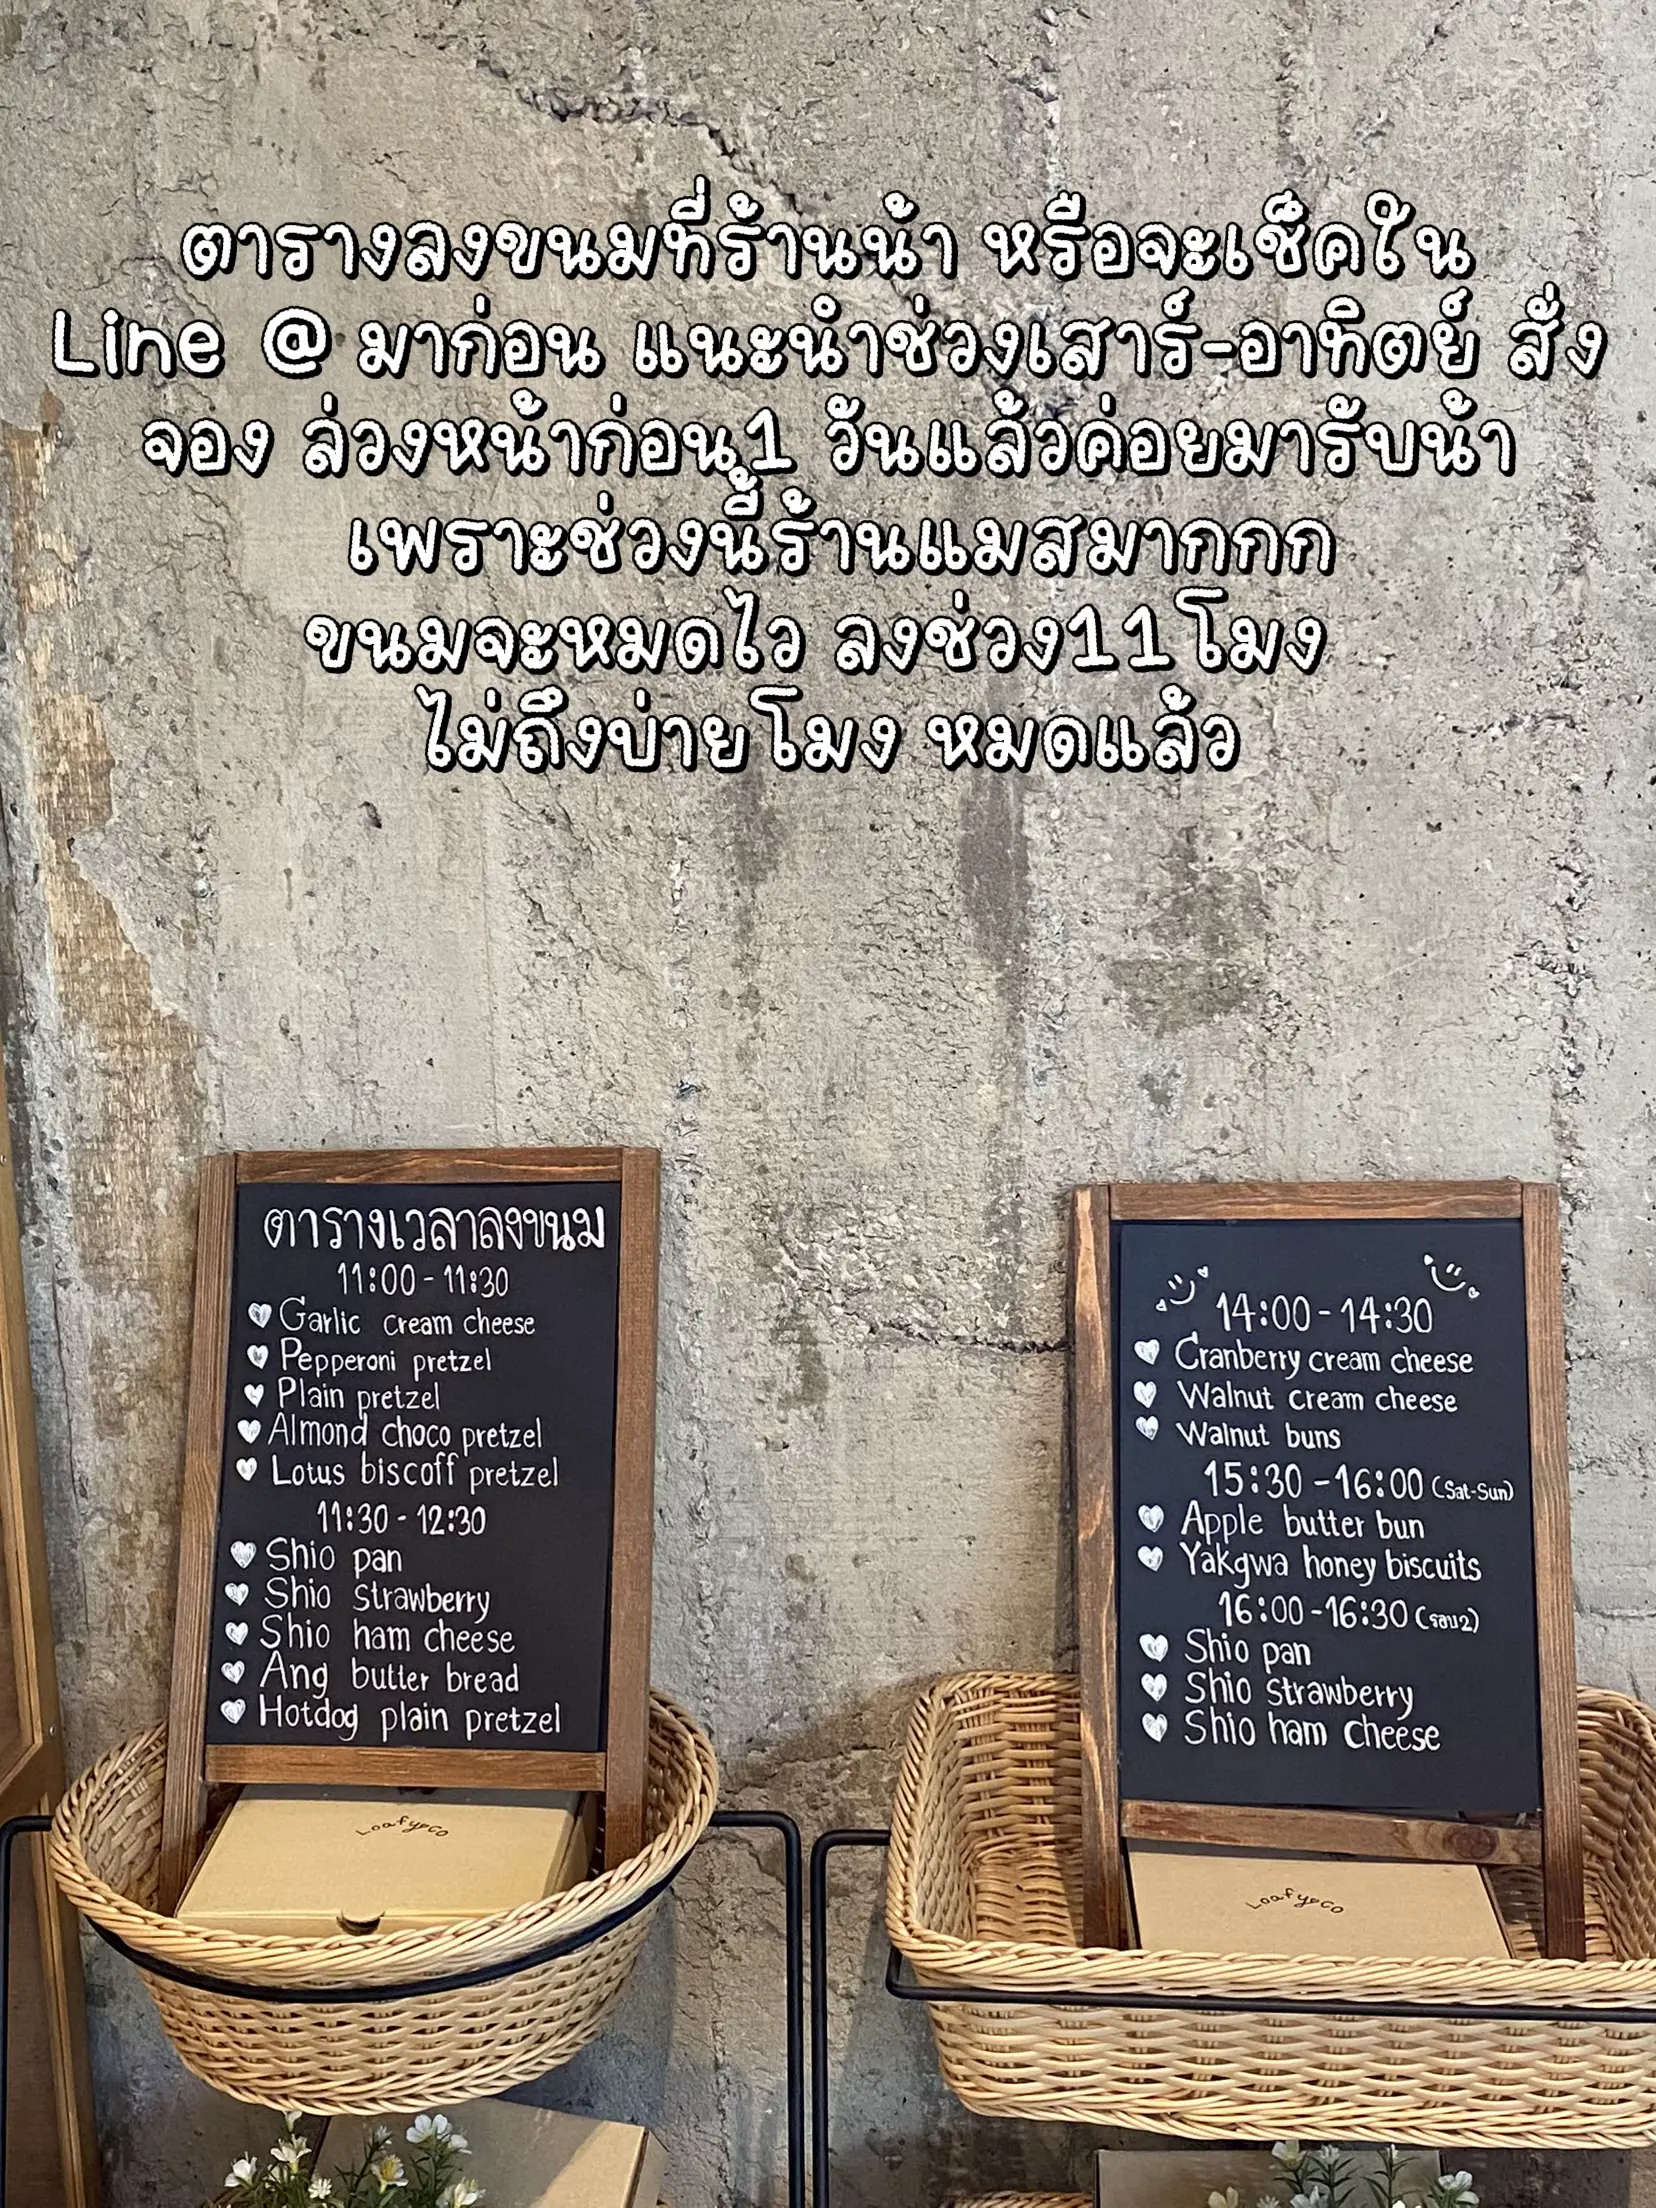 ตารางลงขนมที่ร้านน้า หรือจะเช็คใน
Line @ มาก่อน แนะนำช่วงเสาร์-อาทิตย์ สั่ง
จอง ล่วงหน้าก่อน1 วันแล้วค่อยมารับน้า
เพราะช่วงนี้ร้านแมสมากกก
ขนมจะหมดไว ลงช่วง11โมง
ไม่ถึงบ่ายโมง หมดแล้ว
ตารางเวลาลงขนม
11:00 - 11:30
Garlic cream cheese
Pepperoni pretzel
Plain pretzel
Almond choco pretzel
Lotus biscoff pretzel
11:30 - 12:30
Shio pan
Shio strawberry
Shio ham cheese
Ang butter bread
Hotdog plain pretzel
Loafy&co
14:00 - 14:30
Cranberry cream cheese
Walnut cream cheese
Walnut buns
15:30 - 16:00 (Sat-Sun)
Apple butter bun
Yakgwa honey biscuits
16:00 - 16:30 (รอบ2)
Shio pan
Shio strawberry
Shio ham cheese
Loafy&co